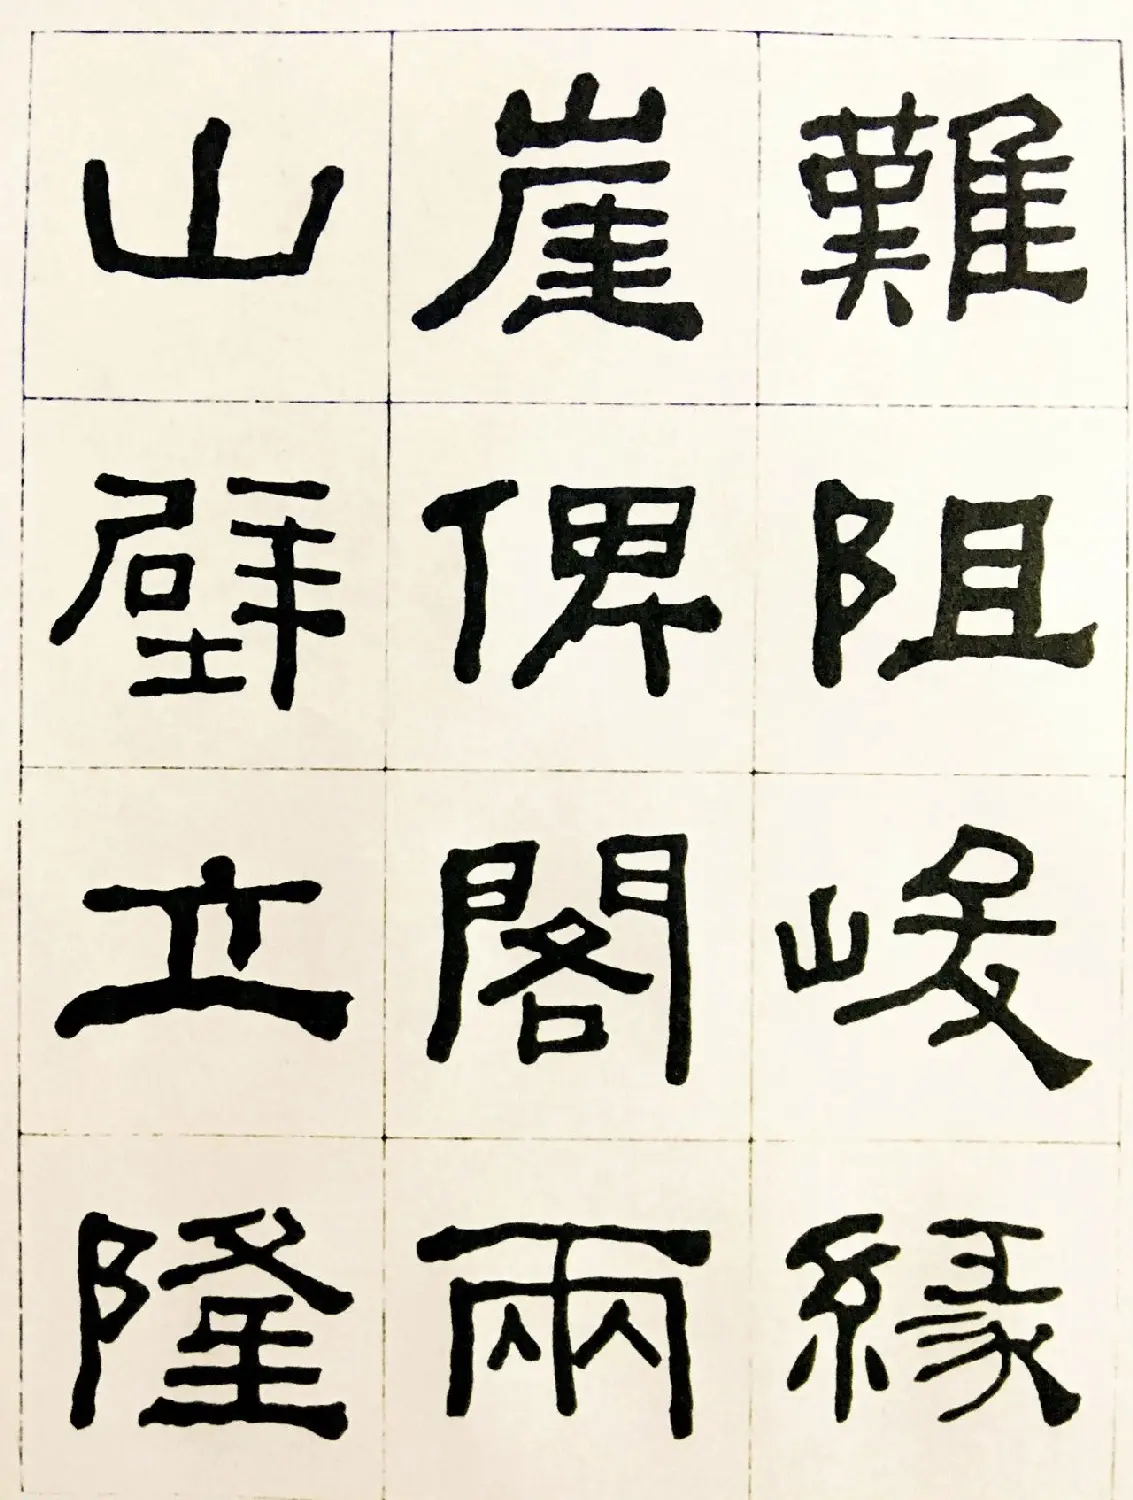 難阻峻緣
崖俾閣兩
山壁立隆